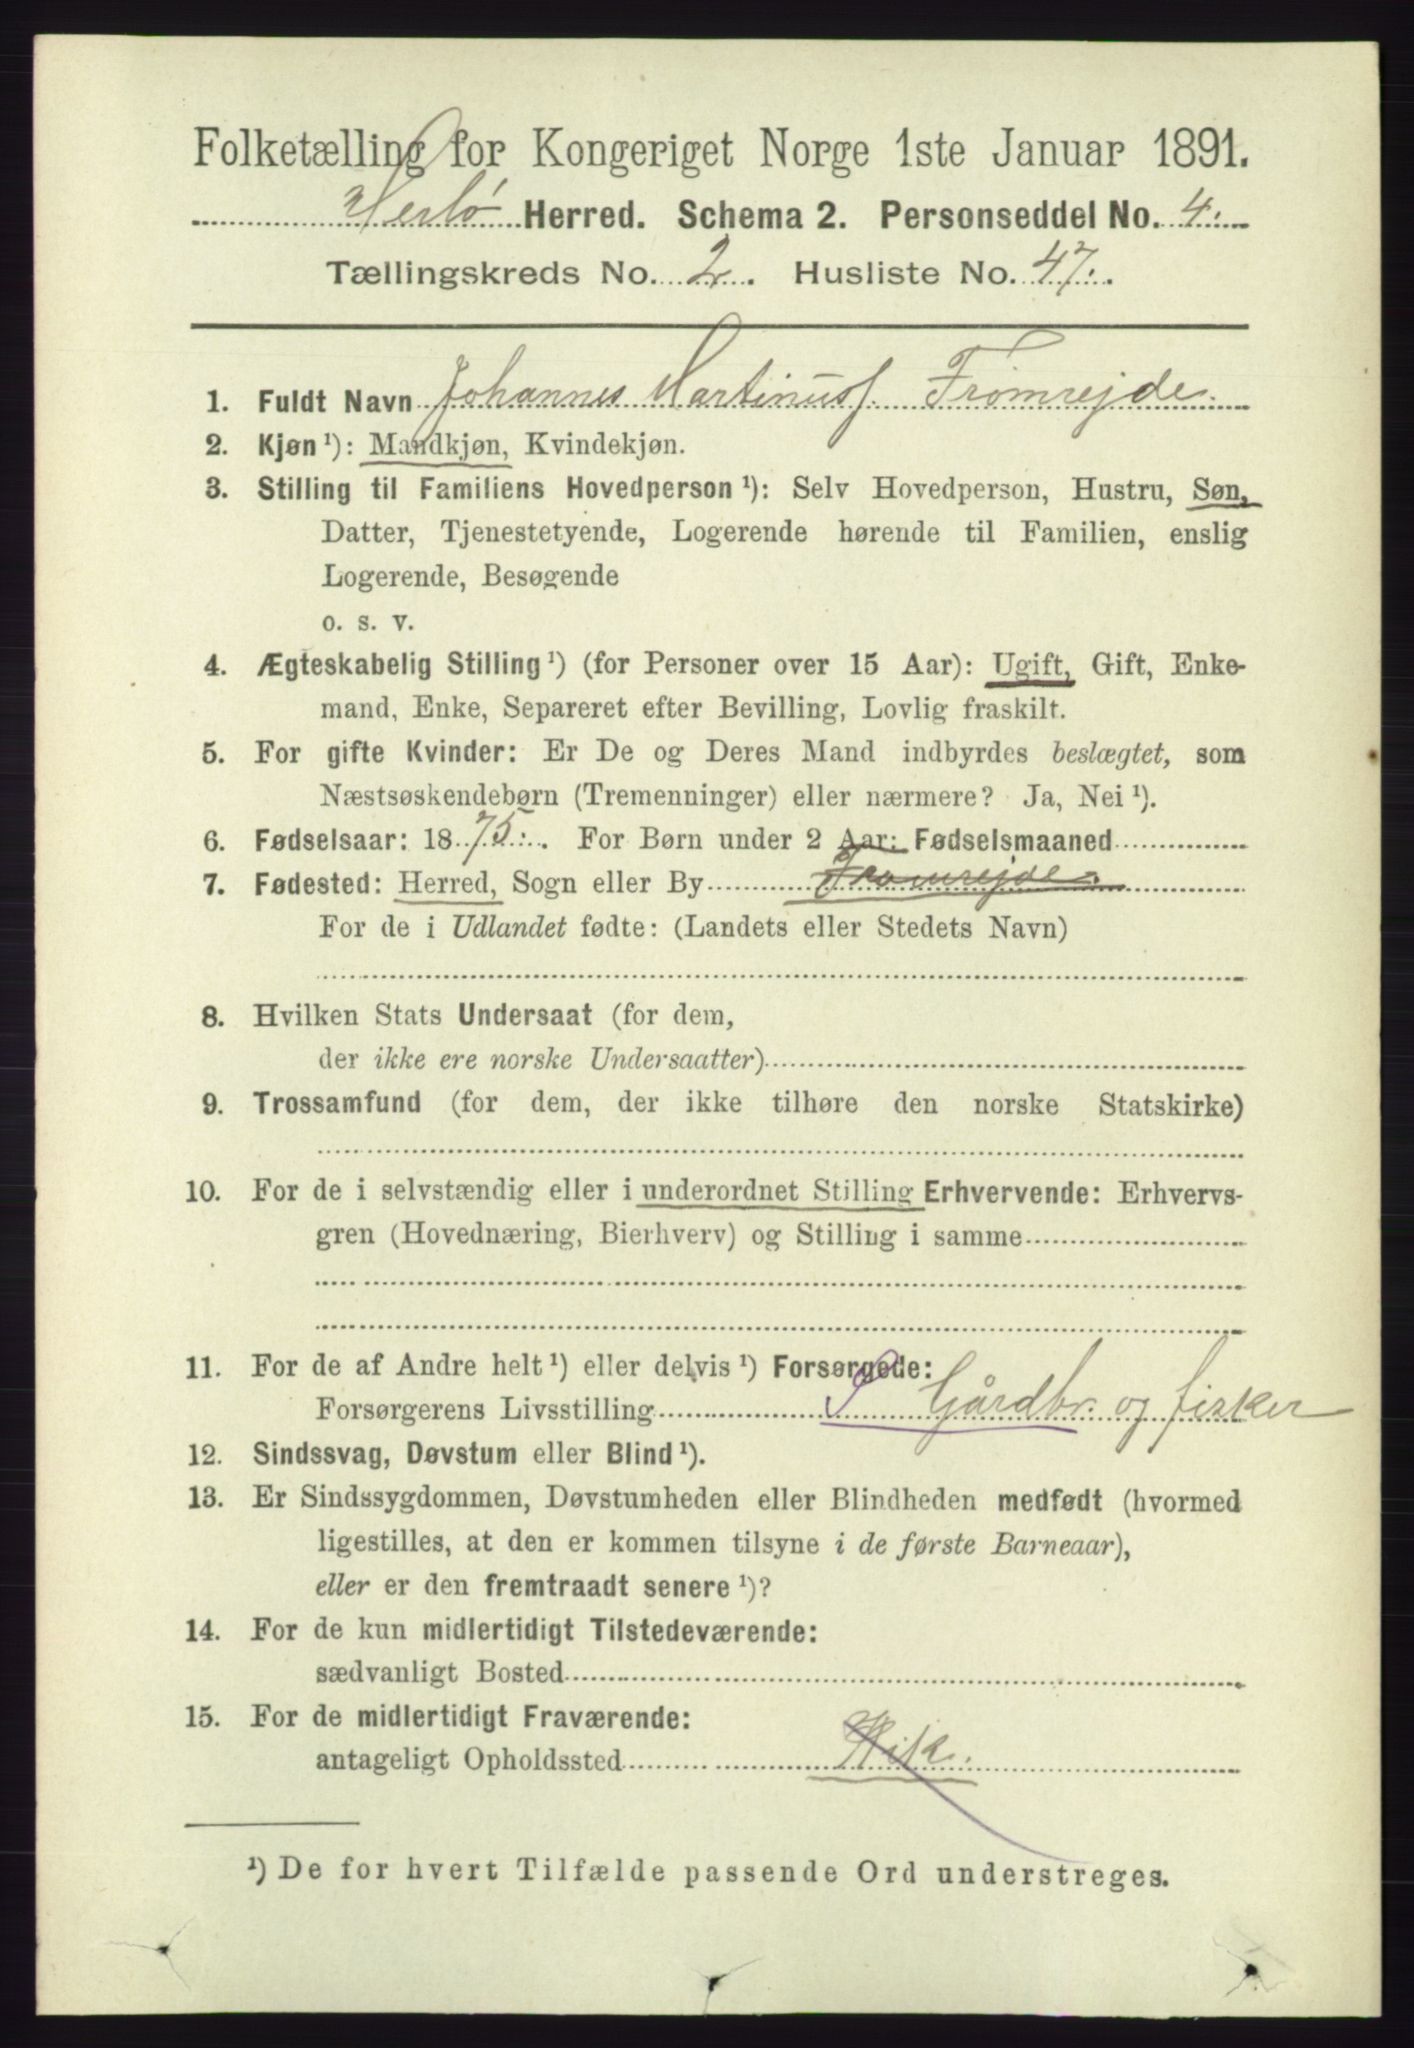 Folketælling for Kongeriget Norge 1ste Januar 1891.
Herlø Herred. Schema 2. Personseddel No. 4.
Tællingskreds No. 2. Husliste No. 47.
1. Fuldt Navn Johannes Martinusf. Frømrejde.
2. Kjøn ¹): Mandkjøn, Kvindekjøn.
3. Stilling til Familiens Hovedperson ¹): Selv Hovedperson, Hustru, Søn,
Datter, Tjenestetyende, Logerende hørende til Familien, enslig
Logerende, Besøgende
o. s. v.
4. Ægteskabelig Stilling ¹) (for Personer over 15 Aar): Ugift, Gift, Enke-
mand, Enke, Separeret efter Bevilling, Lovlig fraskilt.
5. For gifte Kvinder: Er De og Deres Mand indbyrdes beslægtet, som
Næstsøskendebørn (Tremenninger) eller nærmere? Ja, Nei ¹).
6. Fødselsaar: 1875. For Børn under 2 Aar: Fødselsmaaned
7. Fødested: Herred, Sogn eller By Frømrejde.
For de i Udlandet fødte: (Landets eller Stedets Navn)
8. Hvilken Stats Undersaat (for dem,
der ikke ere norske Undersaatter)
9. Trossamfund (for dem, der ikke tilhøre den norske Statskirke)
10. For de i selvstændig eller i underordnet Stilling Erhvervende: Erhvervs-
gren (Hovednæring, Bierhverv) og Stilling i samme
11. For de af Andre helt ¹) eller delvis ¹) Forsørgede:
Forsørgerens Livsstilling S Gårdbr. og fisker
12. Sindssvag, Døvstum eller Blind ¹).
13. Er Sindssygdommen, Døvstumheden eller Blindheden medfødt (hvormed
ligestilles, at den er kommen tilsyne i de første Barneaar),
eller er den fremtraadt senere ¹)?
14. For de kun midlertidigt Tilstedeværende:
sædvanligt Bosted
15. For de midlertidigt Fraværende:
antageligt Opholdssted
¹) De for hvert Tilfælde passende Ord understreges.